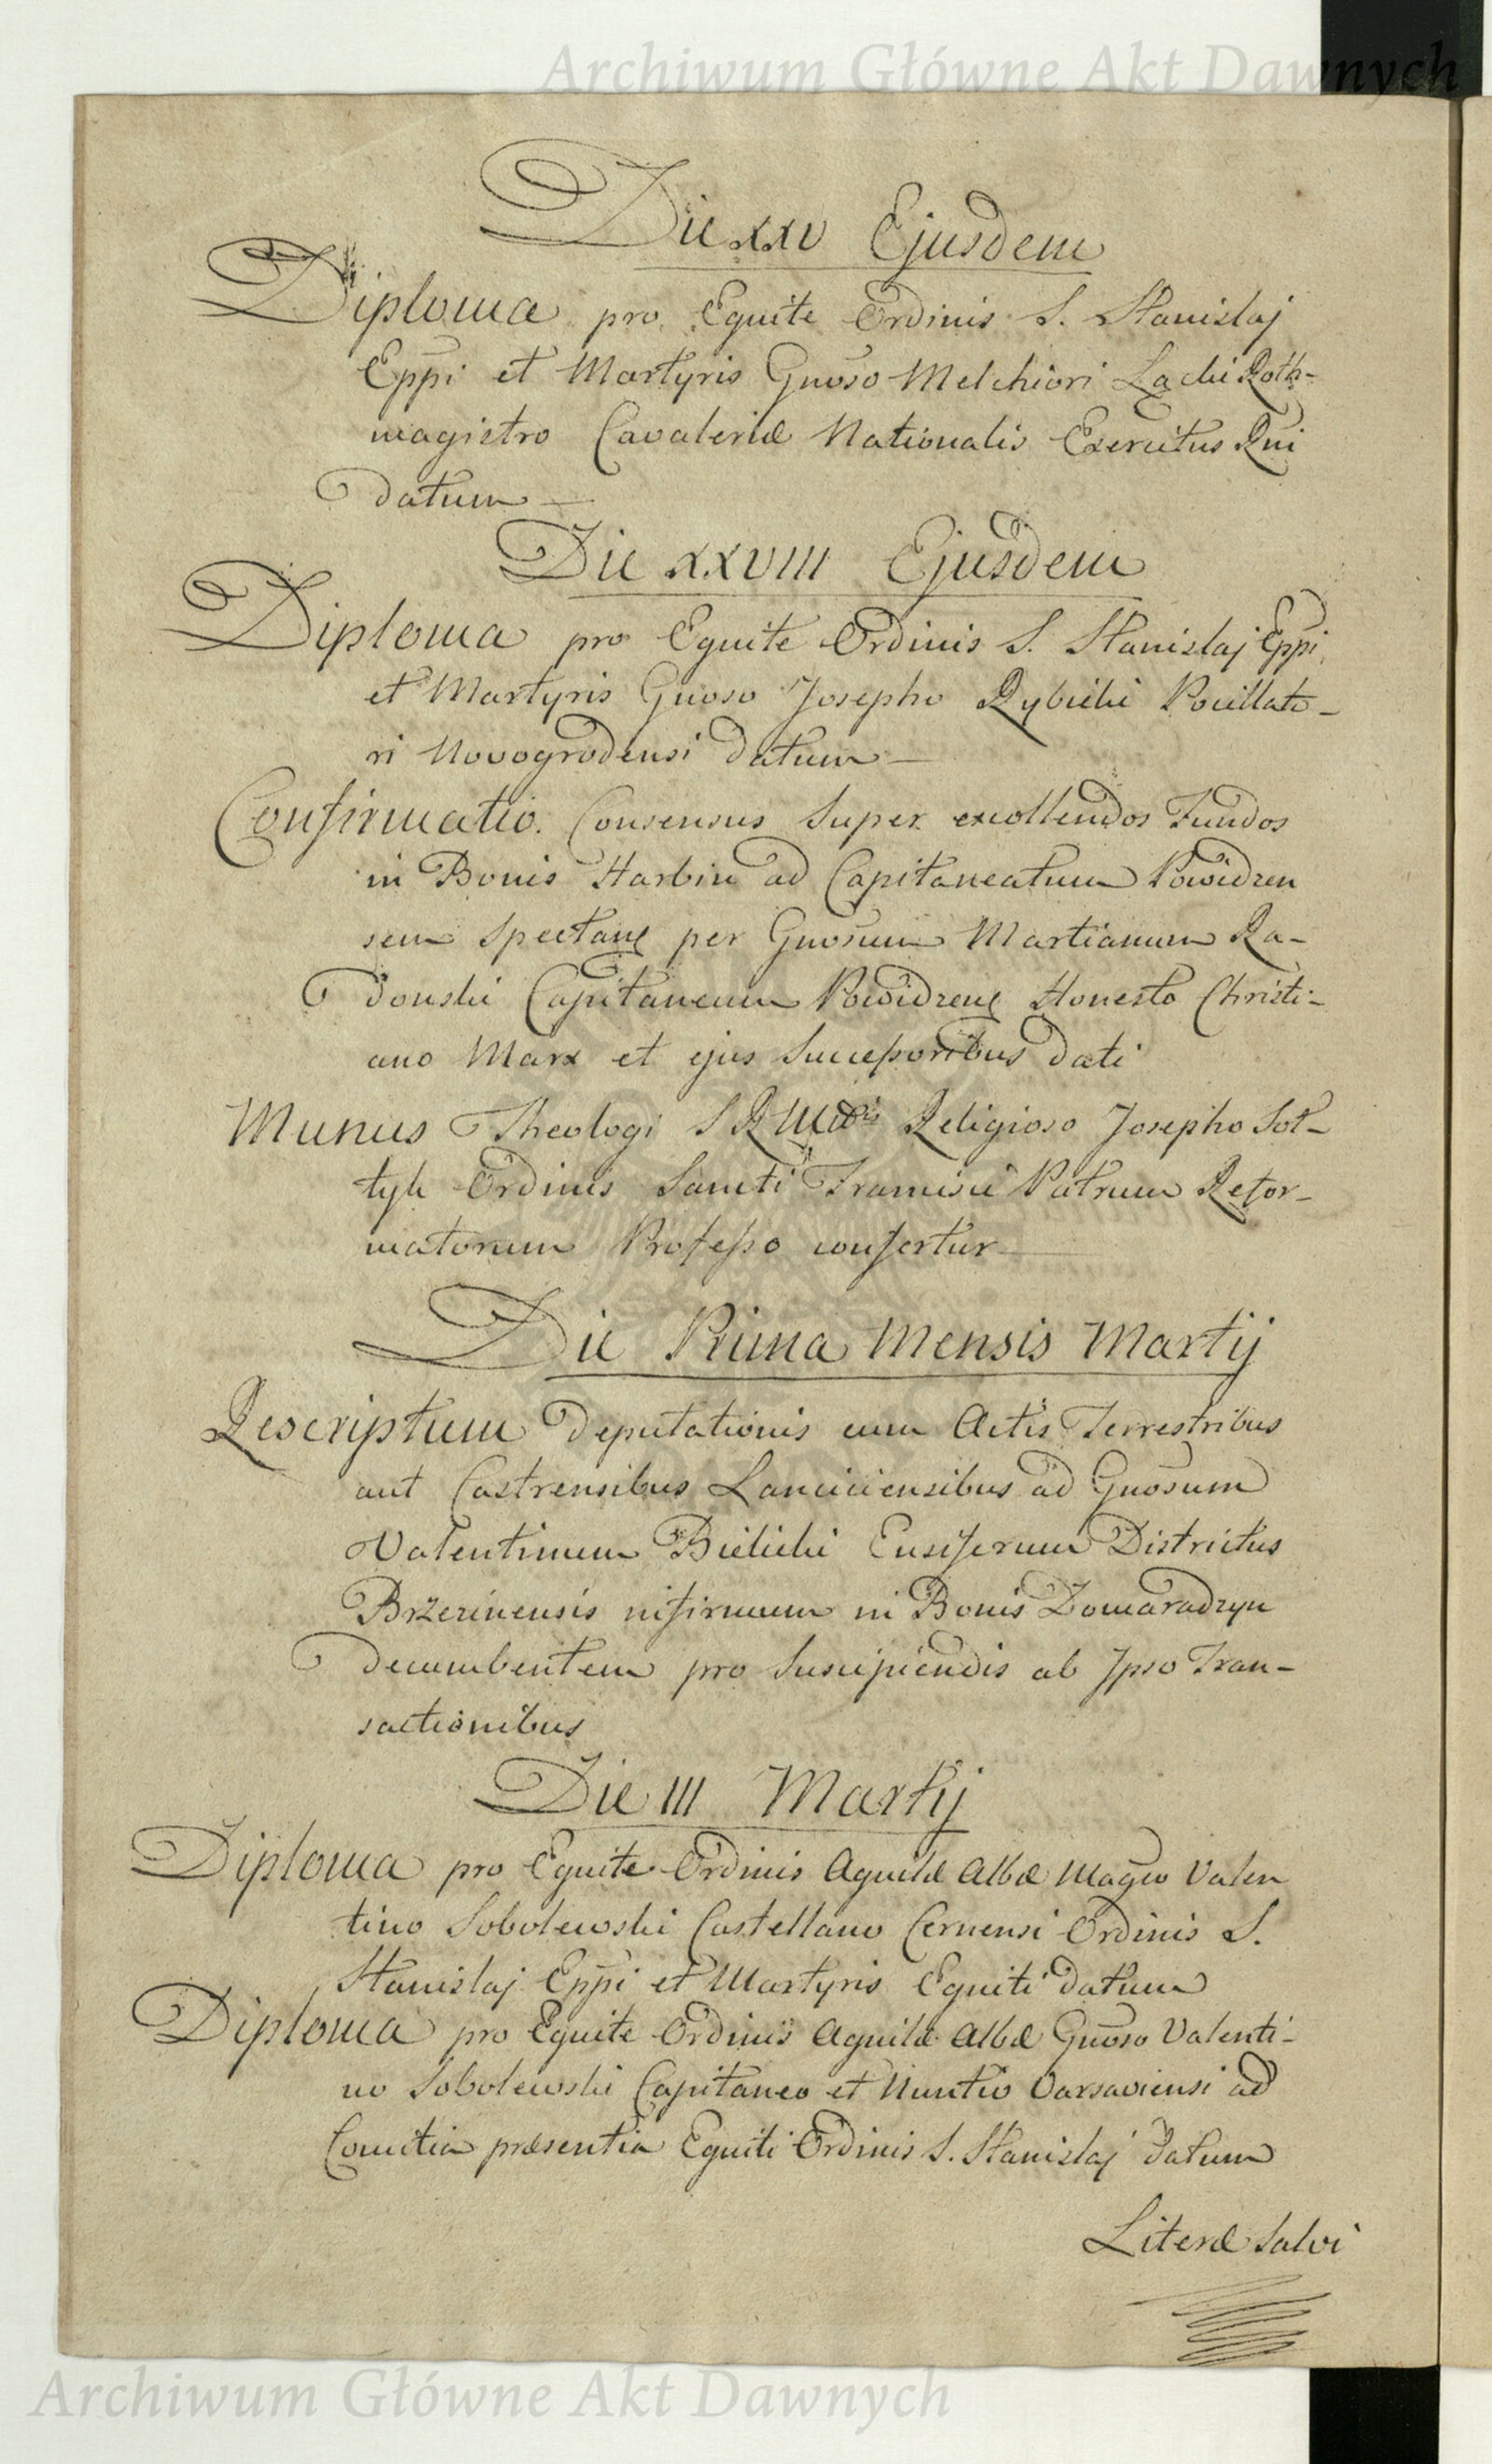 Archiwum Główne Akt Dawnych
Die XXV Ejusdem
Diploma pro Equite Ordinis S. Stanislaj
Eppi et Martyris Gnoso Melchiori Lącki Roth-
magistro Cavaleriæ Nationalis Exercitus Rni
datum
Die XXVIII Ejusdem
Diploma pro Equite Ordinis S. Stanislaj Eppi
et Martyris Gnoso Josepho Rybicki Pocillato-
ri Novogrodensi datum
Confirmatio Consensus super excollendos Fundos
in Bonis Harbin ad Capitaneatum Powidzen
sem spectan per Gnosum Martianum Ra-
donski Capitaneum Powidzen Honesto Christi-
ano Marx et ejus Successoribus dati
Munus Theologi S R Mttis Religioso Josepho Sot-
tyk Ordinis Sancti Francisci Patrum Refor-
matorum Professo confertur
Die Prima Mensis Martij
Rescriptum Deputationis cum Actis Terrestribus
aut Castrensibus Lanciciensibus ad Gnosum
Valentinum Bielicki Ensiferum Districtus
Brzezinensis infirmum in Bonis Domaradzyn
decumbentem pro suscipiendis ab Ipso Tran-
sactionibus
Die III Martij
Diploma pro Equite Ordinis Aquilæ Albæ Magco Valen
tino Sobolewski Castellano Cernensi Ordinis S.
Stanislaj Eppi et Martyris Equiti datum
Diploma pro Equite Ordinis Aquilæ Albæ Gnoso Valenti-
no Sobolewski Capitaneo et Nuntio Varsaviensi ad
Comitia præsentia Equiti Ordinis S. Stanislaj datum
Literæ Salvi
Archiwum Główne Akt Dawnych